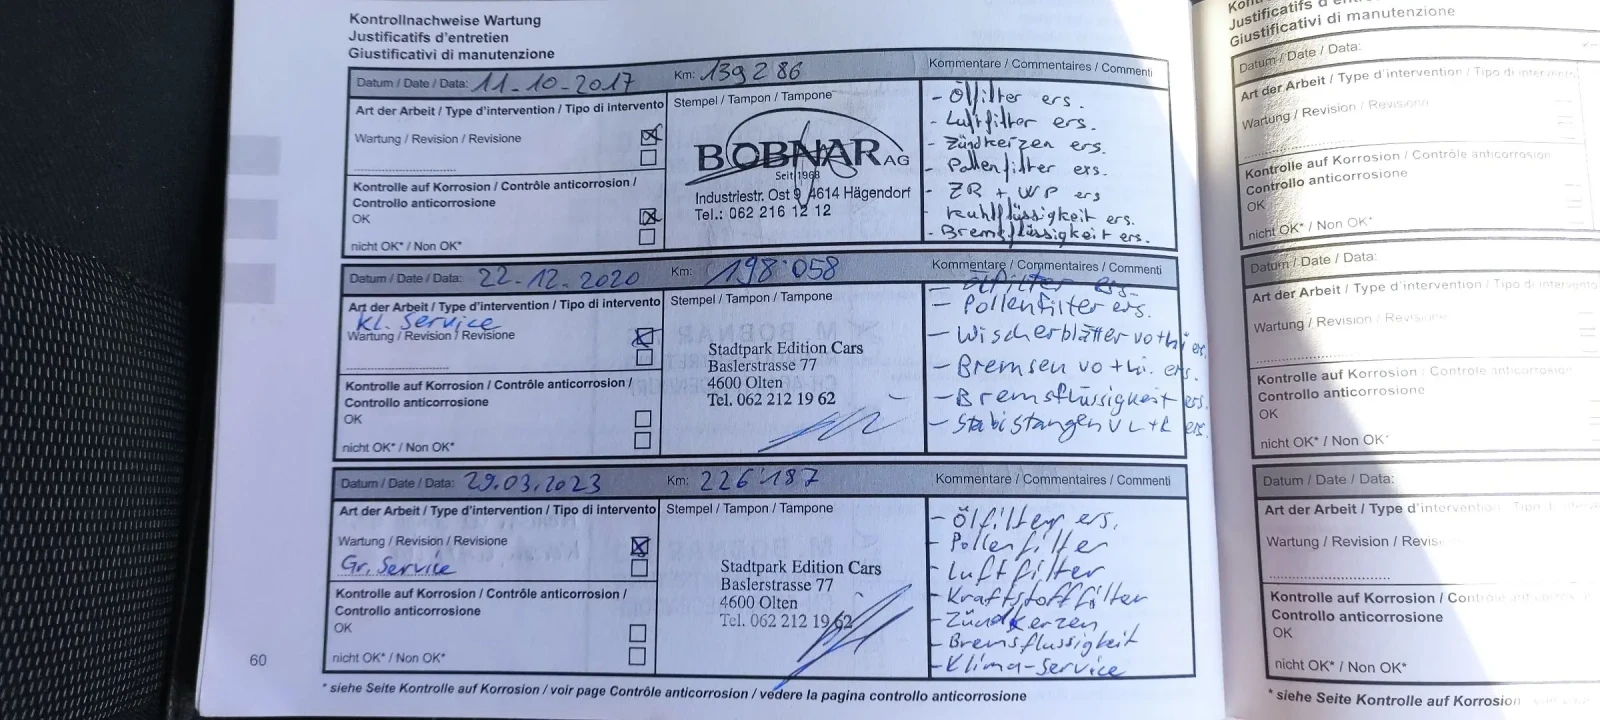 Kontrollnachweise Wartung
Justificatifs d'entretien
Giustificativi di manutenzione
Datum / Date / Data: 11-10-2017 Km: 139286 Kommentare / Commentaires / Commenti
Art der Arbeit / Type d'intervention / Tipo di intervento
Wartung / Revision / Revisione
Kontrolle auf Korrosion / Contrôle anticorrosion /
Controllo anticorrosione
OK
nicht OK* / Non OK*
Stempel / Tampon / Tampone
BOBNAR AG
Seit 1968
Industriestr. Ost 9 4614 Hägendorf
Tel.: 062 216 12 12
- Ölfilter ers.
- Luftfilter ers.
- Zündkerzen ers.
- Pollenfilter ers.
- ZR + WP ers
- Kühlflüssigkeit ers.
- Bremsflüssigkeit ers.
Datum / Date / Data: 22-12-2020 Km: 198'058 Kommentare / Commentaires / Commenti
Art der Arbeit / Type d'intervention / Tipo di intervento
Kl. Service
Wartung / Revision / Revisione
Kontrolle auf Korrosion / Contrôle anticorrosion /
Controllo anticorrosione
OK
nicht OK* / Non OK*
Stempel / Tampon / Tampone
Stadtpark Edition Cars
Baslerstrasse 77
4600 Olten
Tel. 062 212 19 62
- Ölfilter ers-
- Pollenfilter ers.
- Wischerblätter vo+hi ers.
- Bremsen vo+hi. ers.
- Bremsflüssigkeit ers.
- Stabistangen v L+R ers.
Datum / Date / Data: 29.03.2023 Km: 226'187 Kommentare / Commentaires / Commenti
Art der Arbeit / Type d'intervention / Tipo di intervento
Wartung / Revision / Revisione
Gr. Service
Kontrolle auf Korrosion / Contrôle anticorrosion /
Controllo anticorrosione
OK
nicht OK* / Non OK*
Stempel / Tampon / Tampone
Stadtpark Edition Cars
Baslerstrasse 77
4600 Olten
Tel. 062 212 19 62
- Ölfilter ers.
- Pollenfilter
- Luftfilter
- Kraftstofffilter
- Zündkerzen
- Bremsflussigkeit
- Klima-Service
60
* siehe Seite Kontrolle auf Korrosion / voir page Contrôle anticorrosion / vedere la pagina controllo anticorrosione
Justificatifs d'entretien
Giustificativi di manutenzione
Datum / Date / Data:
Art der Arbeit / Type d'intervention / Tipo di intervento
Wartung / Revision / Revisione
Kontrolle auf Korrosion / Contrôle anticorrosion
Controllo anticorrosione
OK
nicht OK* / Non OK*
Datum / Date / Data:
Art der Arbeit / Type d'intervention / Tipo di intervento
Wartung / Revision / Revisione
Kontrolle auf Korrosion / Contrôle anticorrosion
Controllo anticorrosione
OK
nicht OK* / Non OK*
Datum / Date / Data:
Art der Arbeit / Type d'intervention
Wartung / Revision / Revis
Kontrolle auf Korrosion / Contrôle anticorrosion
Controllo anticorrosione
OK
nicht OK* / Non OK*
* siehe Seite Kontrolle auf Korrosion